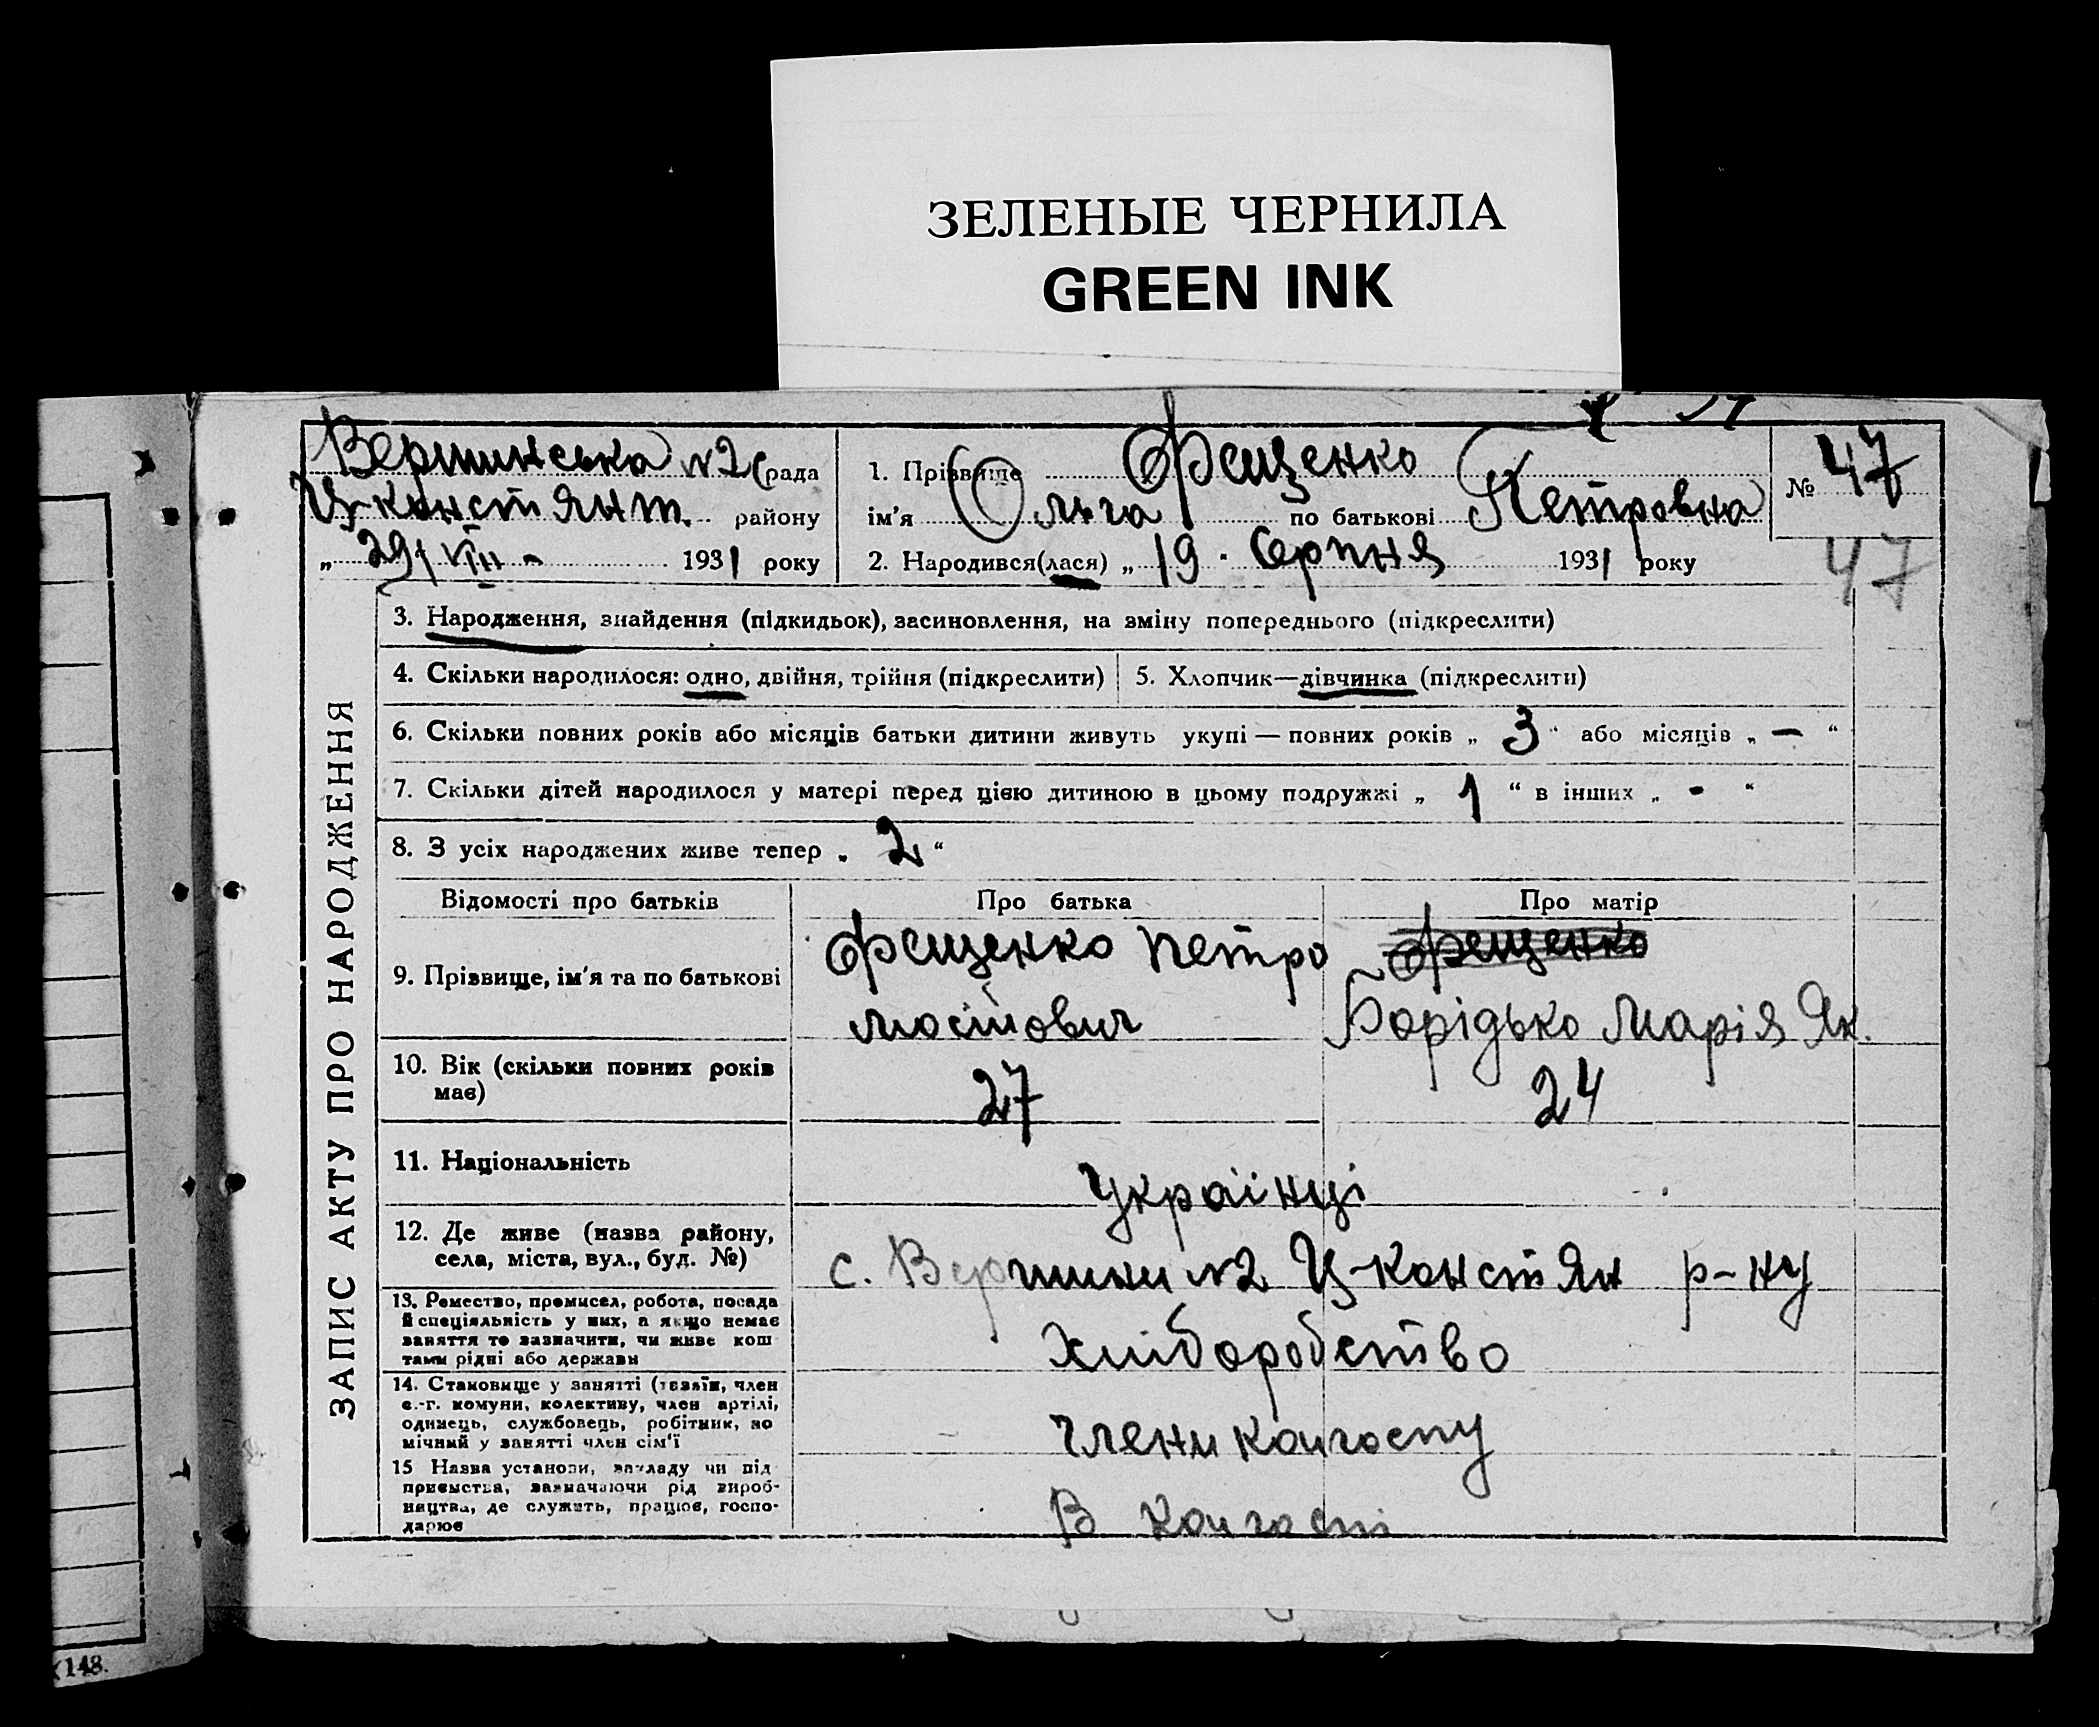 ЗЕЛЕНЫЕ ЧЕРНИЛА
GREEN INK
Вершинська №2 рада
Ц-констянт. району
„ 29/VIII - 1931 року
1. Прізвище Фещенко
ім'я Ольга по батькові Петровна
2. Народився(лася) „ 19 . Серпня 1931 року
№ 47
47
ЗАПИС АКТУ ПРО НАРОДЖЕННЯ
3. Народження, знайдення (підкидьок), засиновлення, на зміну попереднього (підкреслити)
4. Скільки народилося: одно, двійня, трійня (підкреслити)
5. Хлопчик—дівчинка (підкреслити)
6. Скільки повних років або місяців батьки дитини живуть укупі — повних років „ 3 “ або місяців „ — “
7. Скільки дітей народилося у матері перед цією дитиною в цьому подружжі „ 1 “ в інших „ - “
8. З усіх народжених живе тепер „ 2 “
Відомості про батьків
Про батька
Про матір
9. Прізвище, ім'я та по батькові
Фещенко Петро
Фещенко
Борідько Марія Як.
10. Вік (скільки повних років
має)
27
24
11. Національність
Українці
12. Де живе (назва району,
села, міста, вул., буд. №)
с. Вершини №2 Ц-констян р-ну
13. Ремество, промисел, робота, посада
й спеціяльність у них, а якщо немає
заняття то зазначити, чи живе кош
тами рідні або держави
Хліборобство
14. Становище у занятті (хазяїн, член
с.-г. комуни, колективу, член артілі,
одинець, службовець, робітник, по
мічний у занятті член сім'ї
члени колгоспу
15 Назва установи, закладу чи під
приємства, зазначаючи рід вироб-
ництва, де служить, працює, госпо-
дарює
В колгоспі
148.